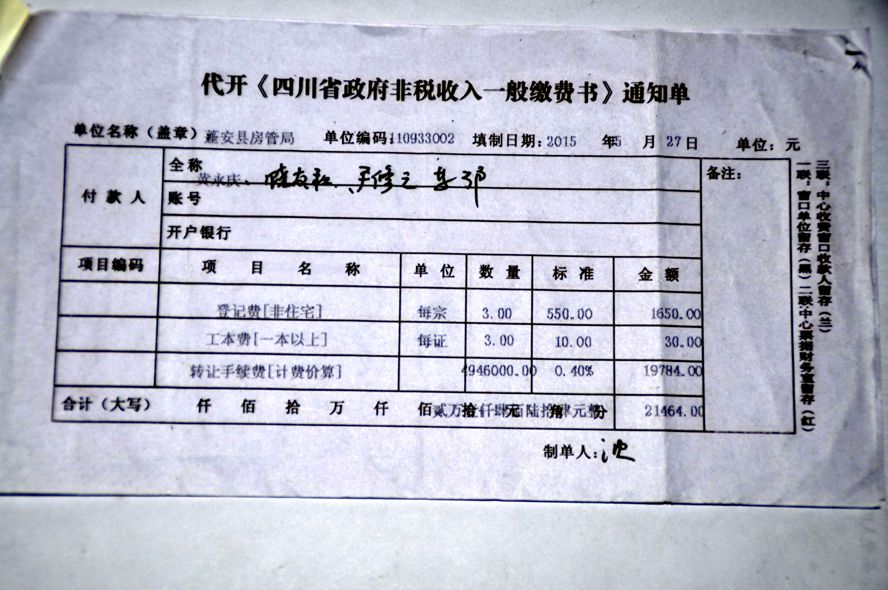 代开《四川省政府非税收入一般缴费书》通知单
单位名称（盖章）蓬安县房管局 单位编码:110933002 填制日期:2015 年5 月 27日 单位：元
付款人 全称 黄永庆、 备注:
账号
开户银行
项目编码 项目名称 单位 数量 标准 金额
登记费[非住宅] 每宗 3.00 550.00 1650.00
工本费[一本以上] 每证 3.00 10.00 30.00
转让手续费[计费价算] 4946000.00 0.40% 19784.00
合计（大写） 仟 佰 拾 万 仟 佰 拾 元 角 分 贰万壹仟肆佰陆拾肆元整 21464.00
制单人:
三联：中心收费窗口收款人留存（兰）
一联：窗口单位留存（黑）二联：中心票据财务室留存（红）